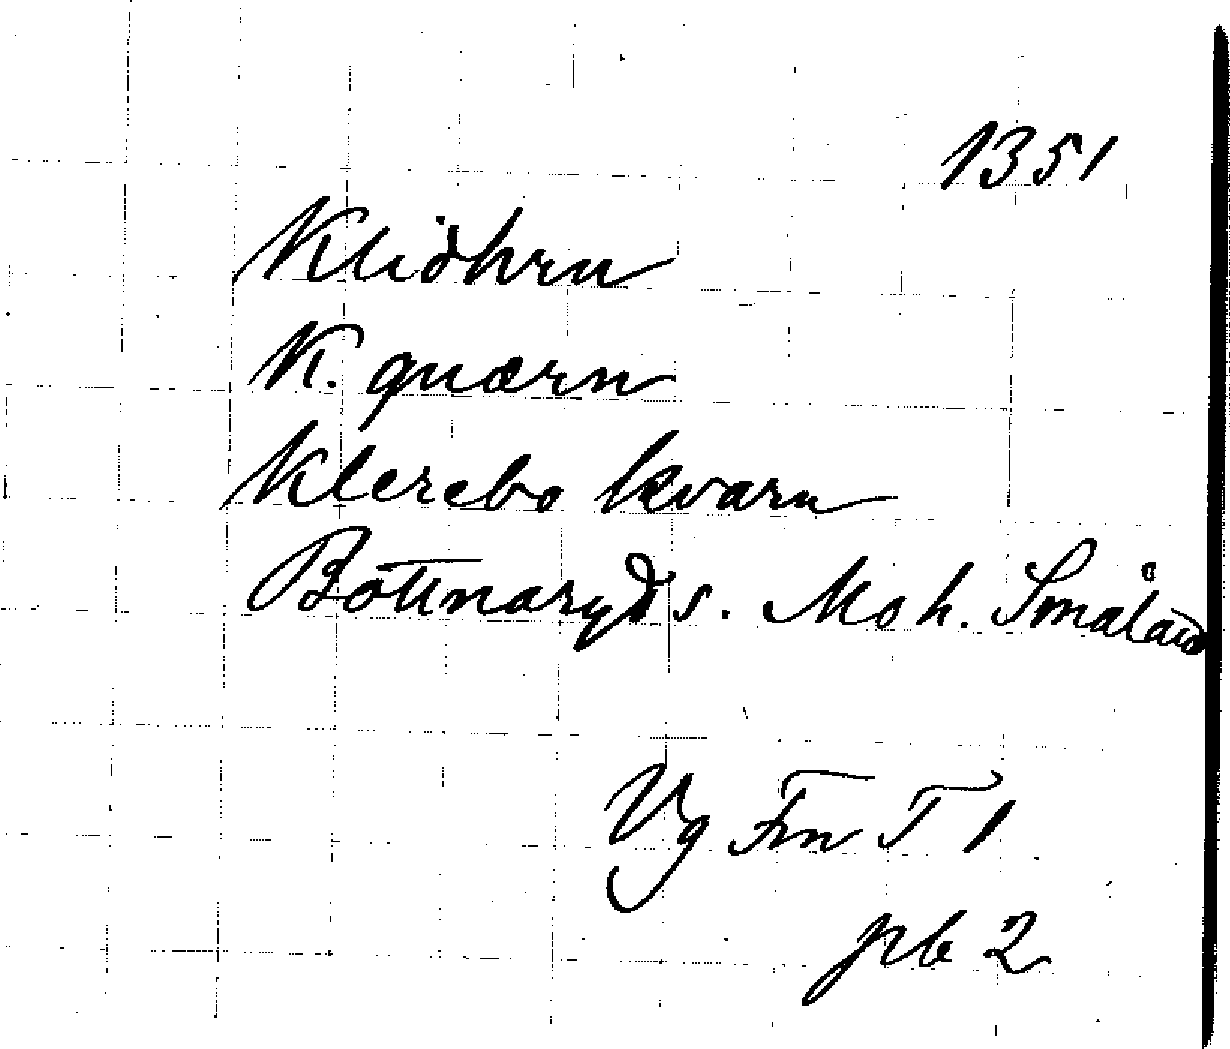 1351
Kliđhru
K. quærn
Klerebo kvarn
Bottnaryds s. Mo h. Småland
Vg Fm T 1
pb 2